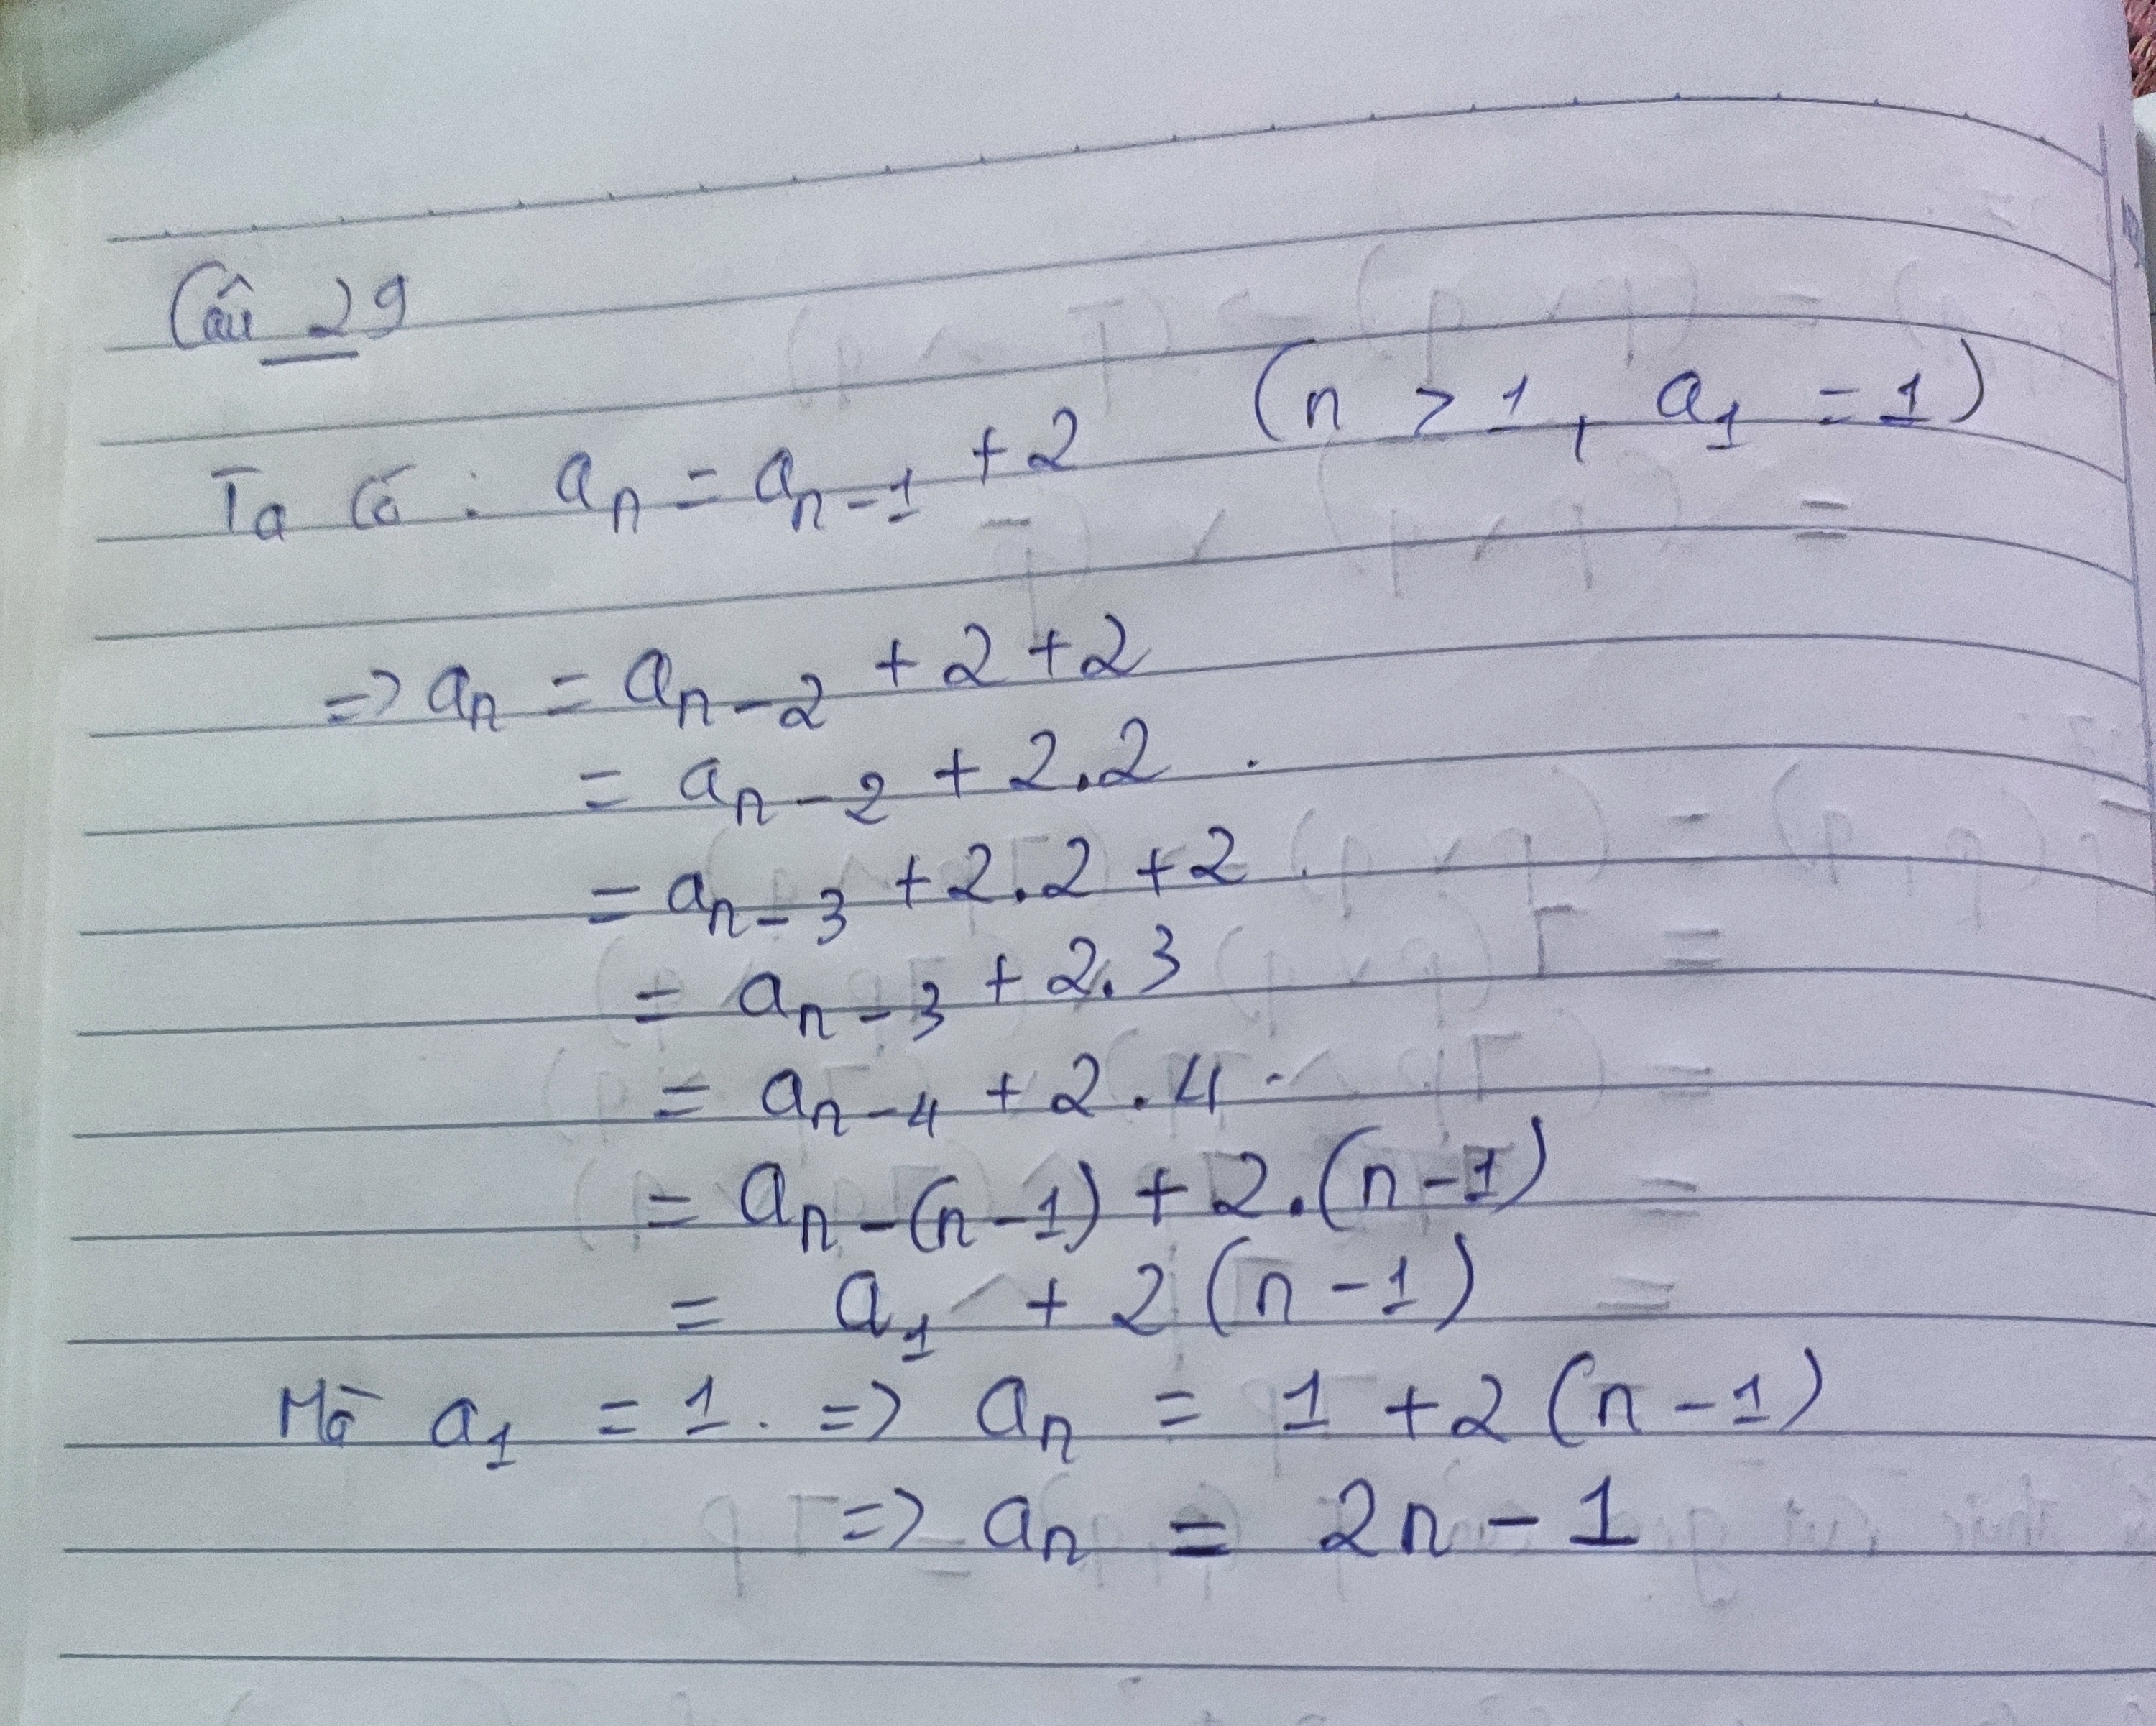 Câu 29
Ta có : aₙ = aₙ₋₁ + 2 (n > 1, a₁ = 1)
=> aₙ = aₙ₋₂ + 2 + 2
= aₙ₋₂ + 2.2 .
= aₙ₋₃ + 2.2 + 2
= aₙ₋₃ + 2.3
= aₙ₋₄ + 2.4
= aₙ₋₍ₙ₋₁₎ + 2.(n-1)
= a₁ + 2(n-1)
Mà a₁ = 1. => aₙ = 1 + 2(n-1)
=> aₙ = 2n - 1